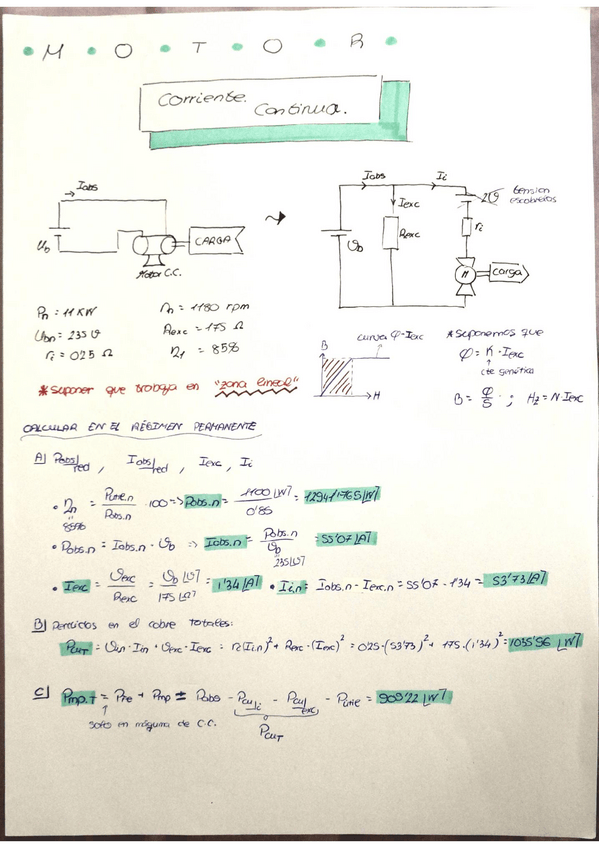 M O T O R
Corriente.
Continua.
Iabs
Ub
CARGA
Motor C.C.
Iabs Ii
Iexc
Rexc
Ub
2V tension escobillas
ri
M
carga
Pn = 11 KW n = 1180 rpm
Ubn = 235 V Rexc = 175 Ω
ri = 0'25 Ω η = 85%
* Suponer que trabaja en "zona lineal"
curva φ-Iexc
B
H
* Suponemos que
φ = K · Iexc
cte genética
B = φ/S ; Hz = N·Iexc
CALCULAR EN EL RÉGIMEN PERMANENTE
A) Pabs/red , Iabs/red , Iexc , Ii
• ηn = Pútil.n / Pabs.n · 100 => Pabs.n = 1100 [W] / 0'85 = 12941'1765 [W]
85%
• Pabs.n = Iabs.n · Ub => Iabs.n = Pabs.n / Ub = 55'07 [A]
235 [V]
• Iexc = Uexc / Rexc = Ub [V] / 175 [Ω] = 1'34 [A] • Ii,n = Iabs.n - Iexc.n = 55'07 - 1'34 = 53'73 [A]
B) Perdidas en el cobre totales:
PcuT = Uin · Iin + Uexc · Iexc = ri (Ii.n)² + Rexc · (Iexc)² = 0'25 · (53'73)² + 175 · (1'34)² = 1035'96 [W]
C) Pmp.T = Pfe + Pmp = Pabs - Pcu/i - Pcu/exc - Pútil = 905'22 [W]
solo en máquina de C.C.
PcuT